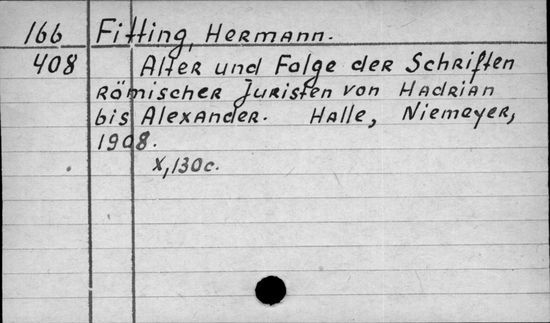 166 Fitting, Hermann.
408 Alter und Folge der Schriften
Römischer Juristen von Hadrian
bis Alexander. Halle, Niemeyer,
1908.
X,130c.